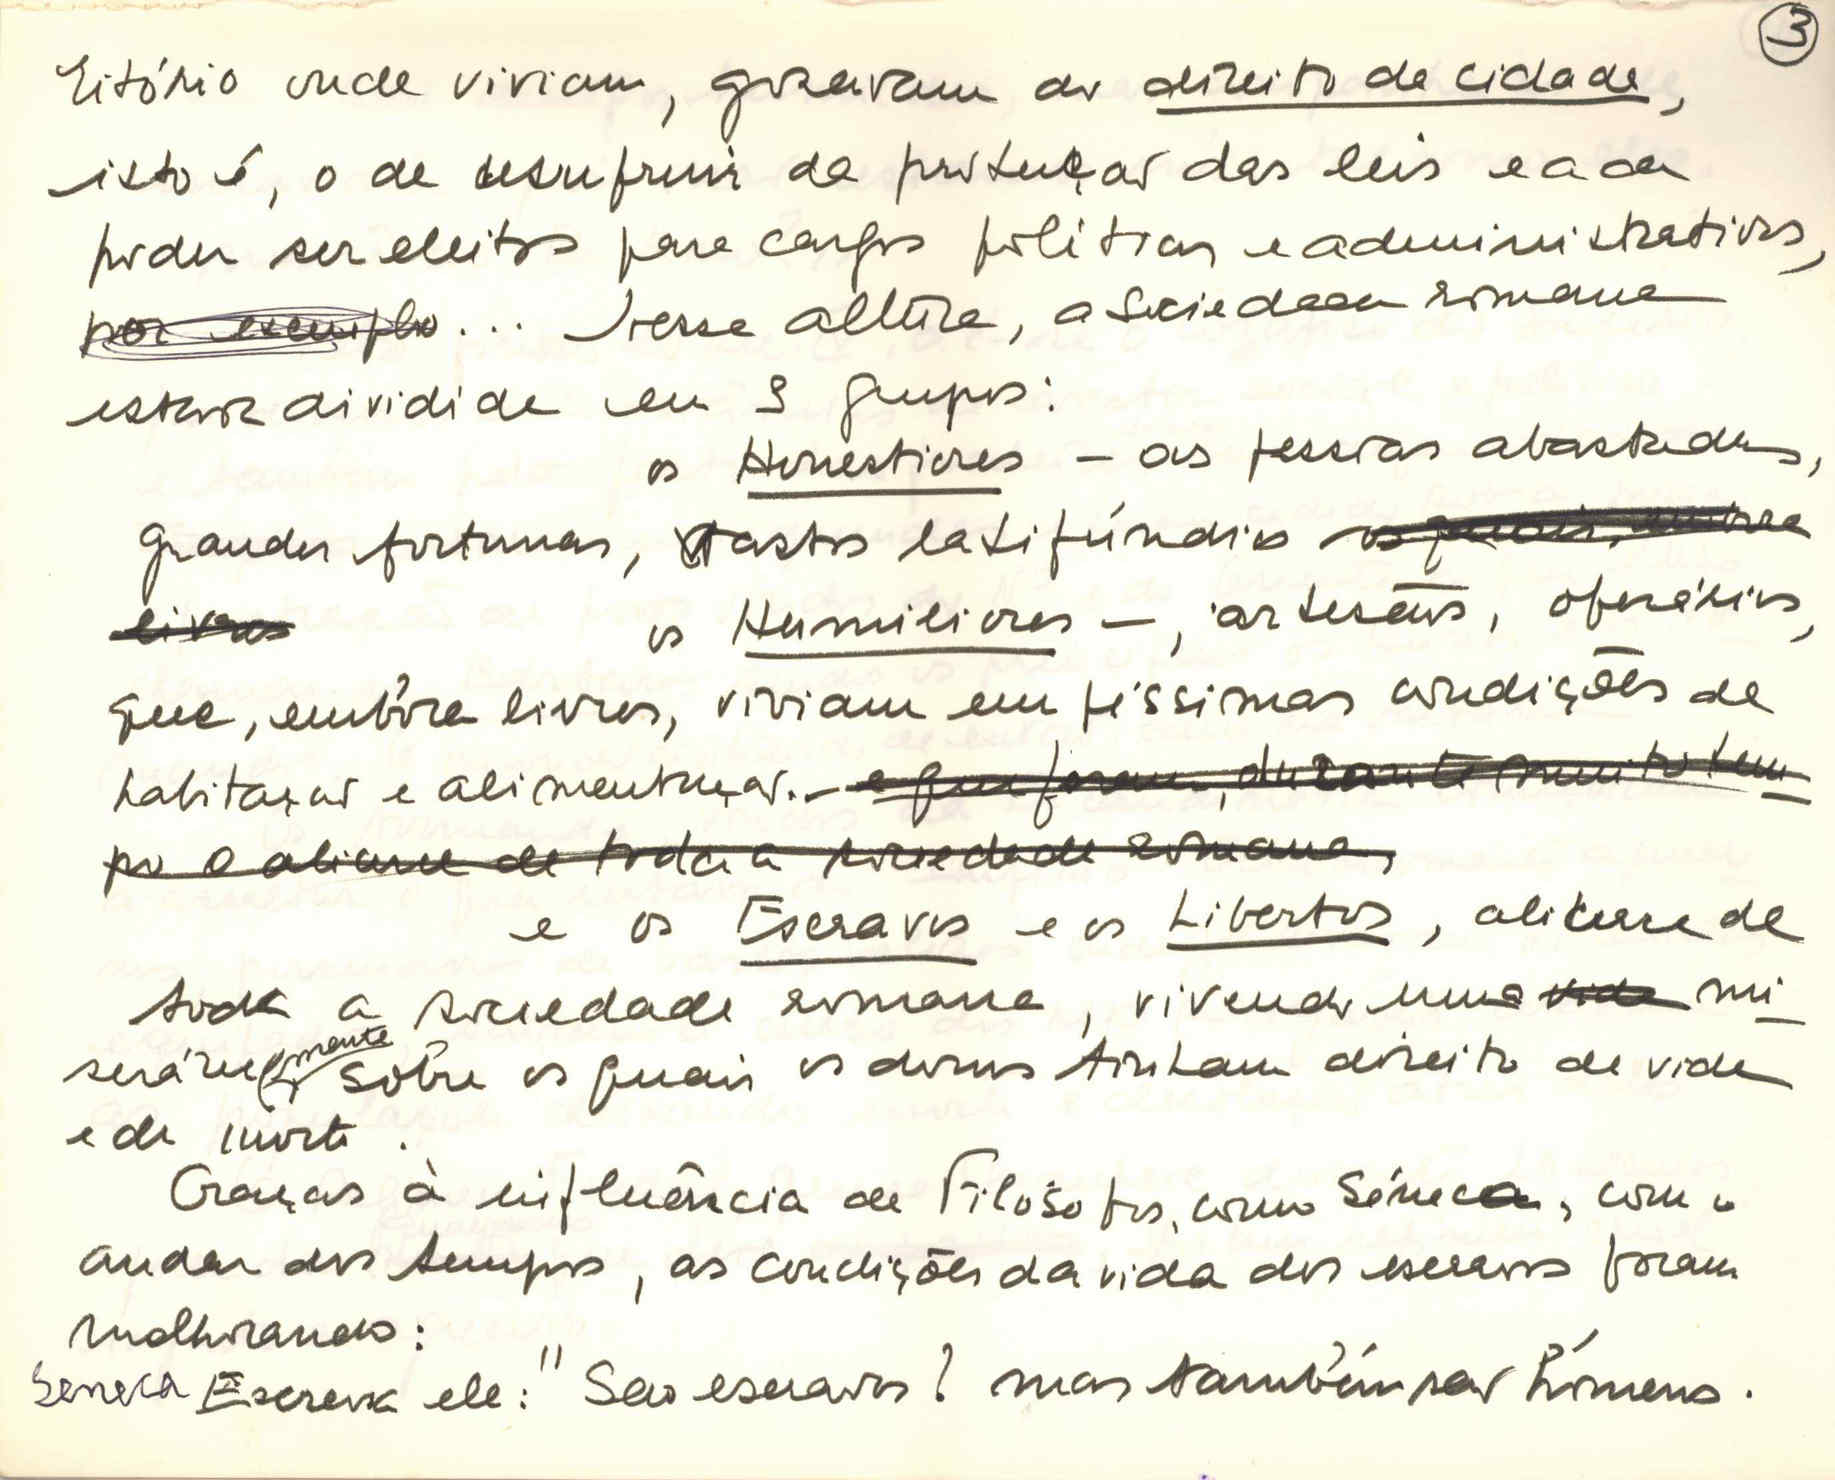 3
ritório onde viviam, gozavam do direito da cidade,
isto é, o de desufruir da protecção das leis e a de
poder ser eleitos para cargos políticos e administrativos,
por exemplo... Nesse altura, a Sociedade romana
estava dividida em 3 grupos:
os Honestiores - as pessoas abastadas,
grandes fortunas, vastos latifúndios os quais, embora
livres os Humiliores -, artesãos, operários,
que, embora livres, viviam em péssimas condições de
habitação e alimentação. - e que foram, durante muito tem
po o alicerce de toda a sociedade romana,
e os Escravos e os Libertos, alicerce de
toda a sociedade romana, vivendo uma vida mi
seráveumente sobre os quais os donos tinham direito de vida
e de morte.
Graças à influência de Filósofos, como Séneca, com o
andar dos tempos, as condições da vida dos escravos foram
melhorando:
Seneca Escreve ele: "São escravos? mas também são hómens.